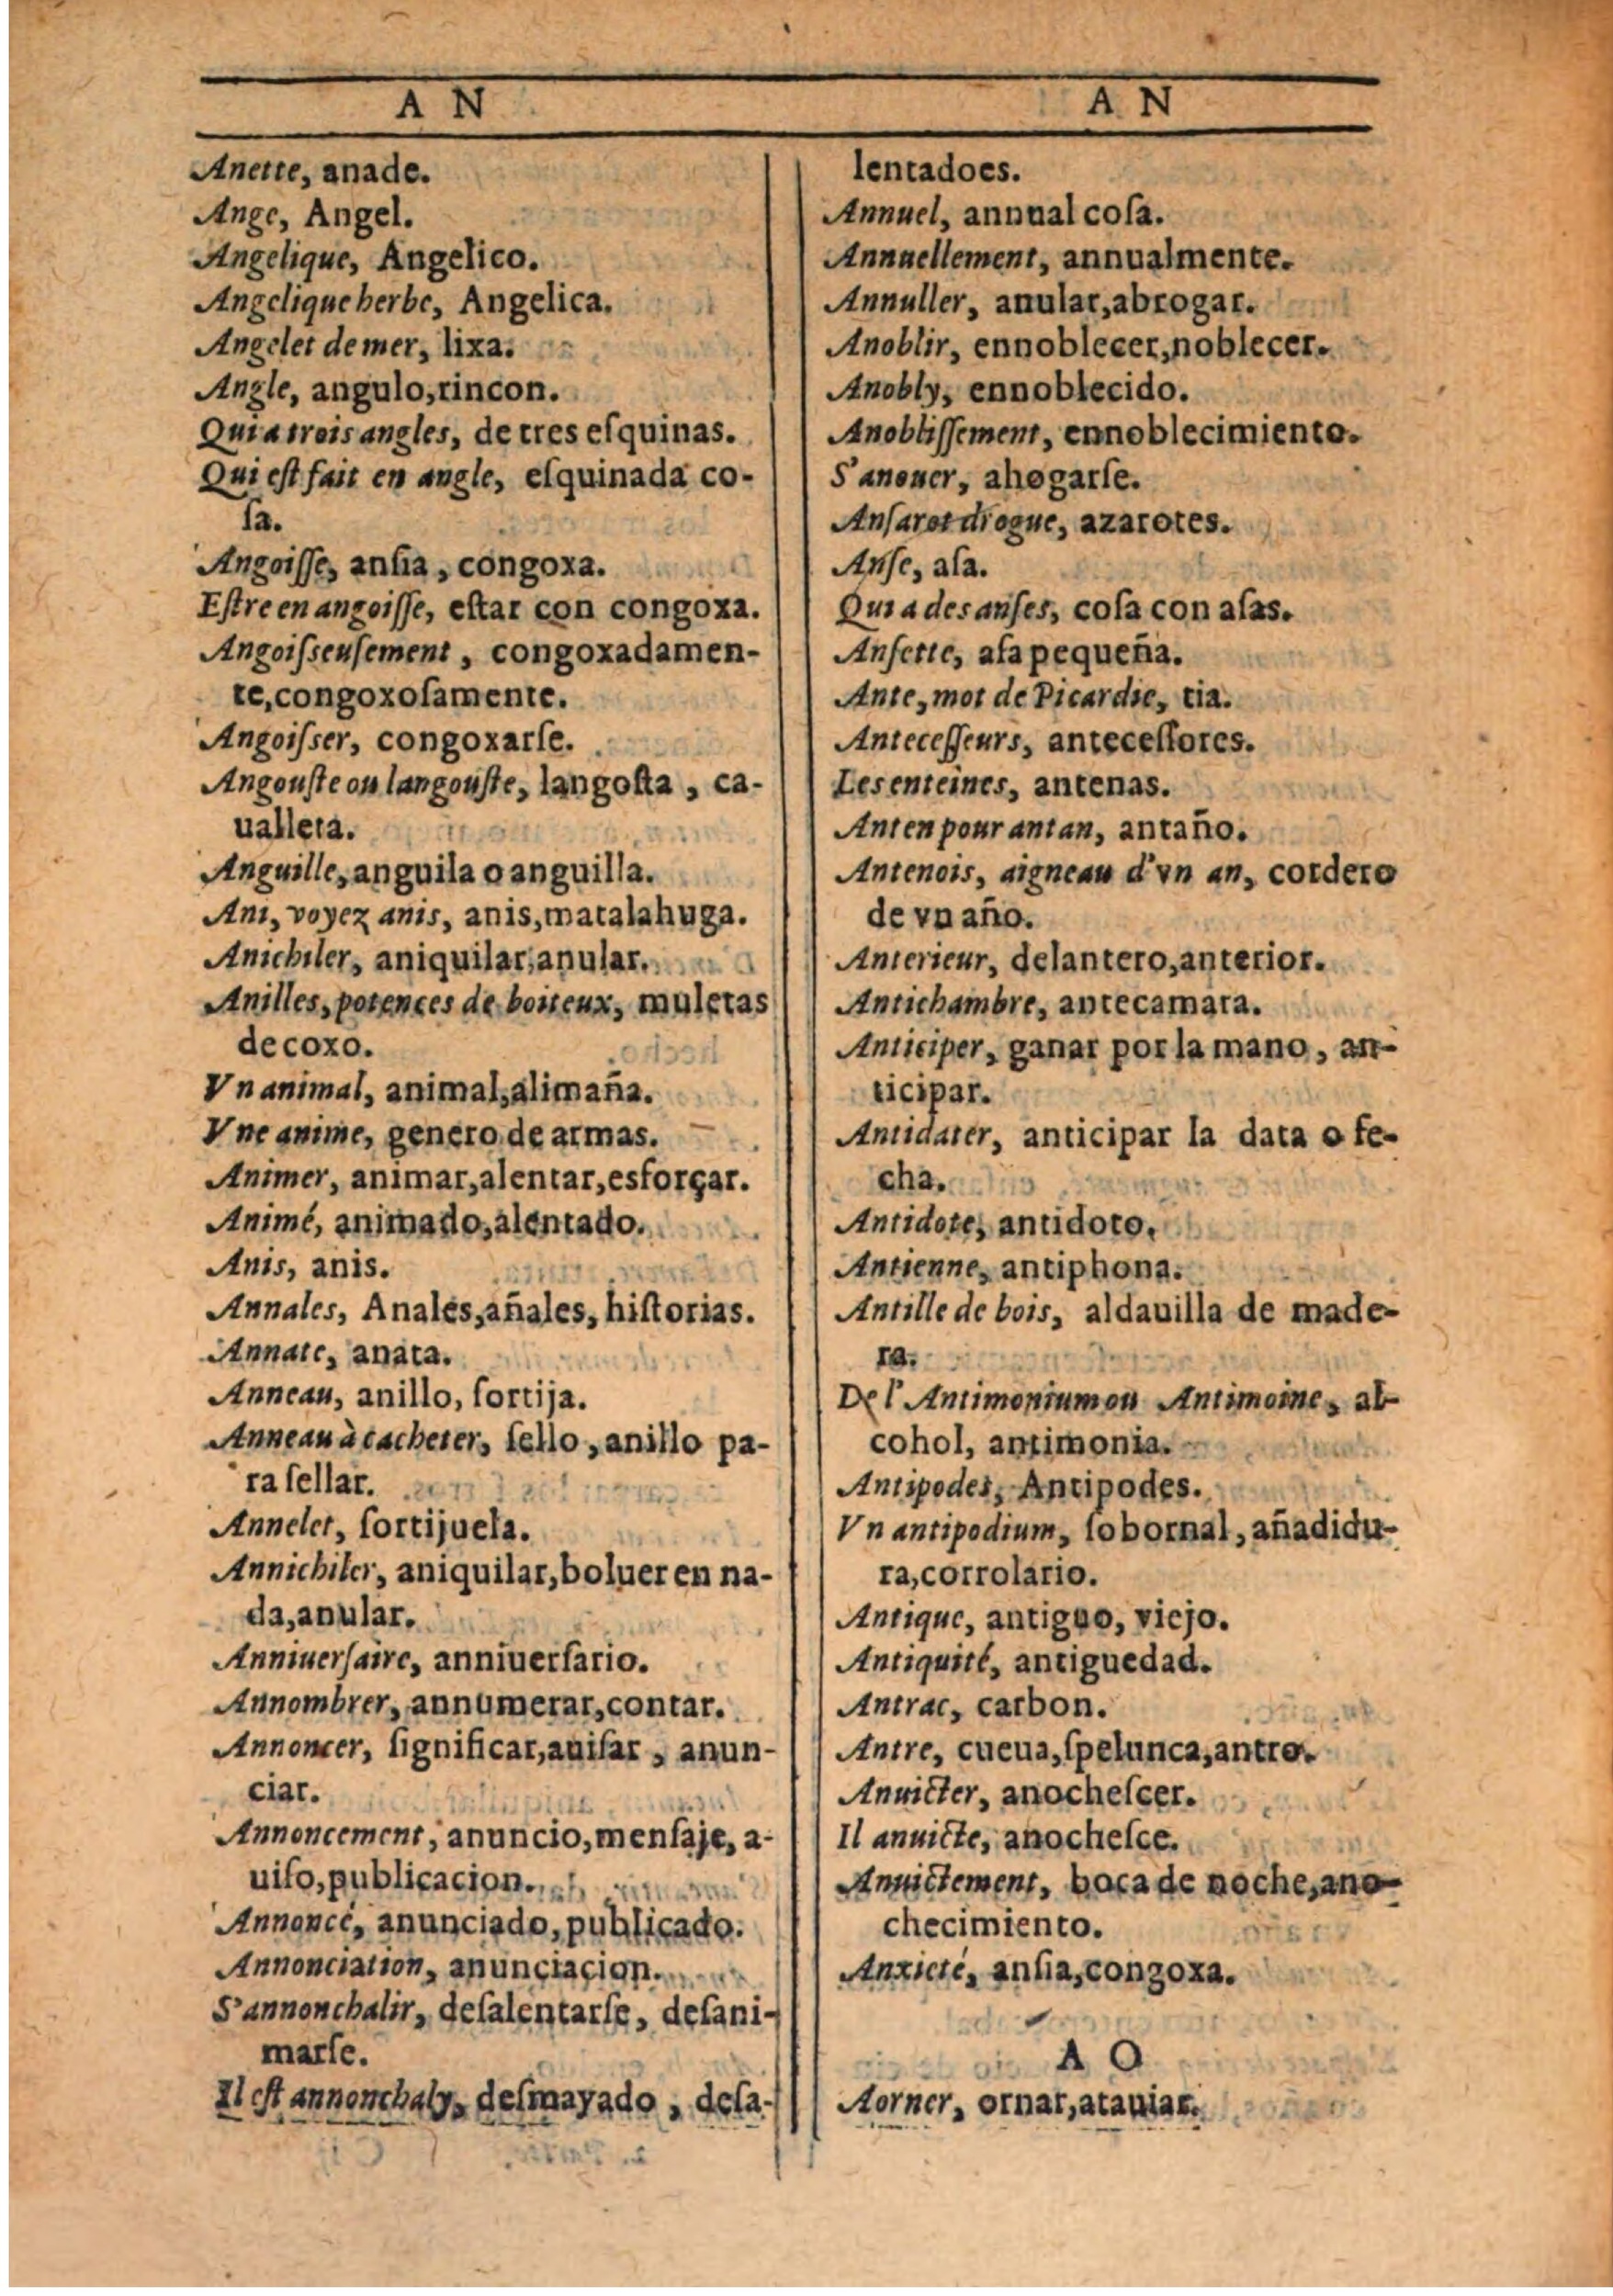 A N
Anette, anade.
Ange, Angel.
Angelique, Angelico.
Angelique herbe, Angelica.
Angelet de mer, lixa.
Angle, angulo, rincon.
Qui a trois angles, de tres eſquinas.
Qui eſt fait en angle, eſquinada co-
ſa.
Angoiſſe, anſia, congoxa.
Eſtre en angoiſſe, eſtar con congoxa.
Angoiſſeuſement, congoxadamen-
te, congoxoſamente.
Angoiſſer, congoxarſe.
Angouſte ou langouſte, langoſta, ca-
ualleta.
Anguille, anguila o anguilla.
Ani, voyez anis, anis, matalahuga.
Anichiler, aniquilar, anular.
Anilles, potences de boiteux, muletas
de coxo.
Vn animal, animal, alimaña.
Vne anime, genero de armas.
Animer, animar, alentar, esforçar.
Animé, animado, alentado.
Anis, anis.
Annales, Anales, añales, hiſtorias.
Annate, anata.
Anneau, anillo, ſortija.
Anneau à cacheter, ſello, anillo pa-
ra ſellar.
Annelet, ſortijuela.
Annichiler, aniquilar, boluer en na-
da, anular.
Anniuerſaire, anniuerſario.
Annombrer, annumerar, contar.
Annoncer, ſignificar, auiſar, anun-
ciar.
Annoncement, anuncio, menſaje, a-
uiſo, publicacion.
Annoncé, anunciado, publicado.
Annonciation, anunciacion.
S'annonchalir, deſalentarſe, deſani-
marſe.
Il eſt annonchaly, deſmayado, deſa-
A N
lentadoes.
Annuel, annual coſa.
Annuellement, annualmente.
Annuller, anular, abrogar.
Anoblir, ennoblecer, noblecer.
Anobly, ennoblecido.
Anobliſſement, ennoblecimiento.
S'anouer, ahogarſe.
Anſarot drogue, azarotes.
Anſe, aſa.
Qui a des anſes, coſa con aſas.
Anſette, aſa pequeña.
Ante, mot de Picardie, tia.
Anteceſſeurs, anteceſſores.
Les enteines, antenas.
Anten pour antan, antaño.
Antenois, aigneau d'vn an, cordero
de vn año.
Anterieur, delantero, anterior.
Antichambre, antecamara.
Anticiper, ganar por la mano, an-
ticipar.
Antidater, anticipar la data o fe-
cha.
Antidote, antidoto.
Antienne, antiphona.
Antille de bois, aldauilla de made-
ra.
De l'Antimonium ou Antimoine, al-
cohol, antimonia.
Antipodes, Antipodes.
Vn antipodium, ſobornal, añadidu-
ra, corrolario.
Antique, antiguo, viejo.
Antiquité, antiguedad.
Antrac, carbon.
Antre, cueua, ſpelunca, antro.
Anuicter, anocheſcer.
Il anuicte, anocheſce.
Anuictement, boca de noche, ano-
checimiento.
Anxieté, anſia, congoxa.
A O
Aorner, ornar, atauiar.